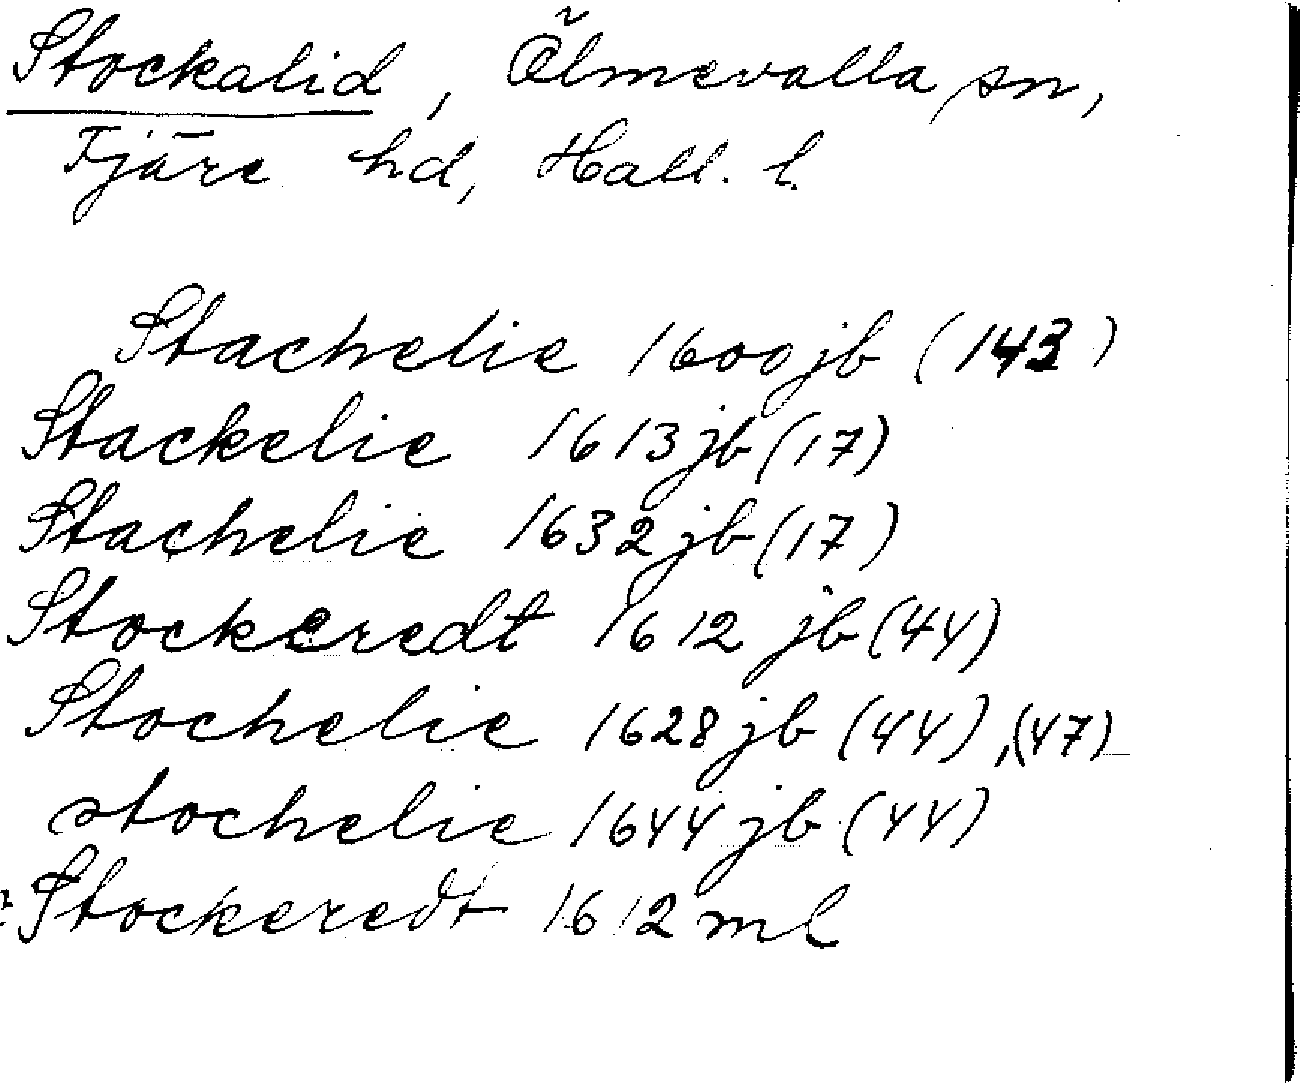 Stockalid, Ölmevalla sn,
Fjäre hd, Hall. l.
Stachelie 1600 jb (143)
Stackelie 1613 jb (17)
Stachelie 1632 jb (17)
Stockeredt 1612 jb (44)
Stochelie 1628 jb (44), (47)
stochelie 1644 jb (44)
Stockeredt 1612 ml